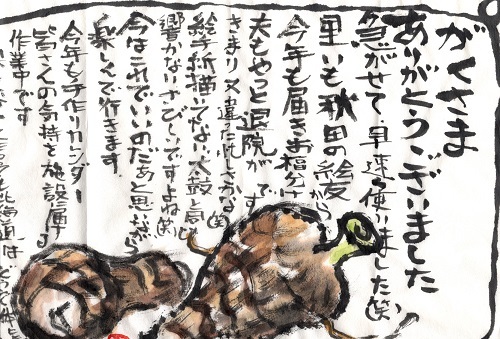 がくさま
ありがとうございました
急がせて、早速使いました(笑)
里いも秋田の絵友から
今年も届きお福分け
夫もやっと退院が
です
きまり又違た忙しさかな(笑)
絵手紙描いてない太鼓と同じ
響かないさびしいですよね(笑)
今はこれでいいのだぁと思いながら
楽しんで行きます。
今年も手作りカレンダー
皆さんの気持を施設届ける
作業中です